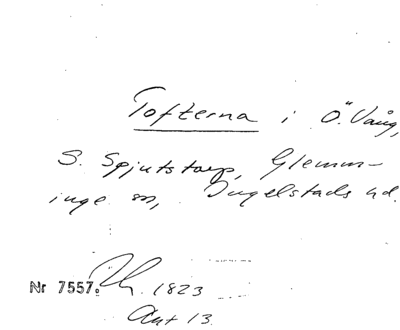 Tofterna i Ö. Vång,
S. Spjutstorp, Glemm-
inge sn, Ingelstads hd.
Nr 7557. 1823
Akt 13.